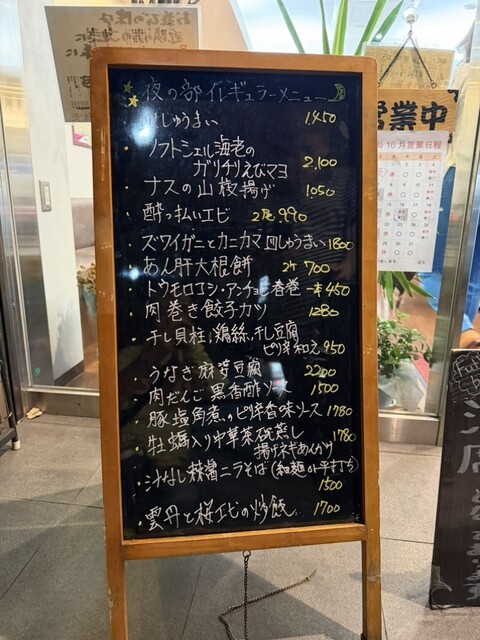 夜の部イレギュラーメニュー
しゅうまい 1450
ソフトシェル海老の
ガリチリえびマヨ 2,100
ナスの山椒揚げ 1,050
酔っ払いエビ 2尾990
ズワイガニとカニカマ皿しゅうまい 1800
あん肝大根餅 2ケ 700
トウモロコシ・アンチョビ春巻 一本450
肉巻き餃子カツ 1280
干し貝柱、鶏絲、干し豆腐
ピリ辛和え 950
うなぎ麻婆豆腐 2200
肉だんご 黒香酢ソース 1500
豚塩角煮のピリ辛香味ソース 1780
牡蠣入り中華茶碗蒸し 1780
揚げネギあんかけ
汁なし辣醤ニラそば(和麺の平打ち)
1500
雲丹と桜エビの炒飯 1700
営業中
10月営業日程